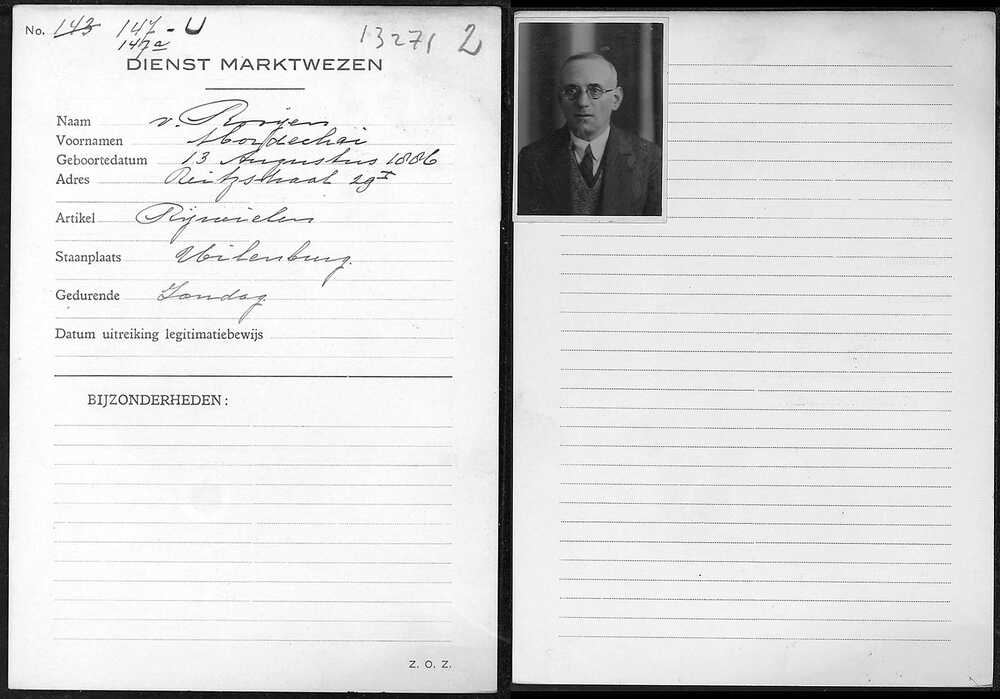 No. 143 147 - U
147a
13271 2
DIENST MARKTWEZEN
Naam v. Booyen
Voornamen Mordechai
Geboortedatum 13 Augustus 1886
Adres Reitzstraat 29 I
Artikel Rijwielen
Staanplaats Uilenburg.
Gedurende Zondag
Datum uitreiking legitimatiebewijs
BIJZONDERHEDEN:
Z. O. Z.